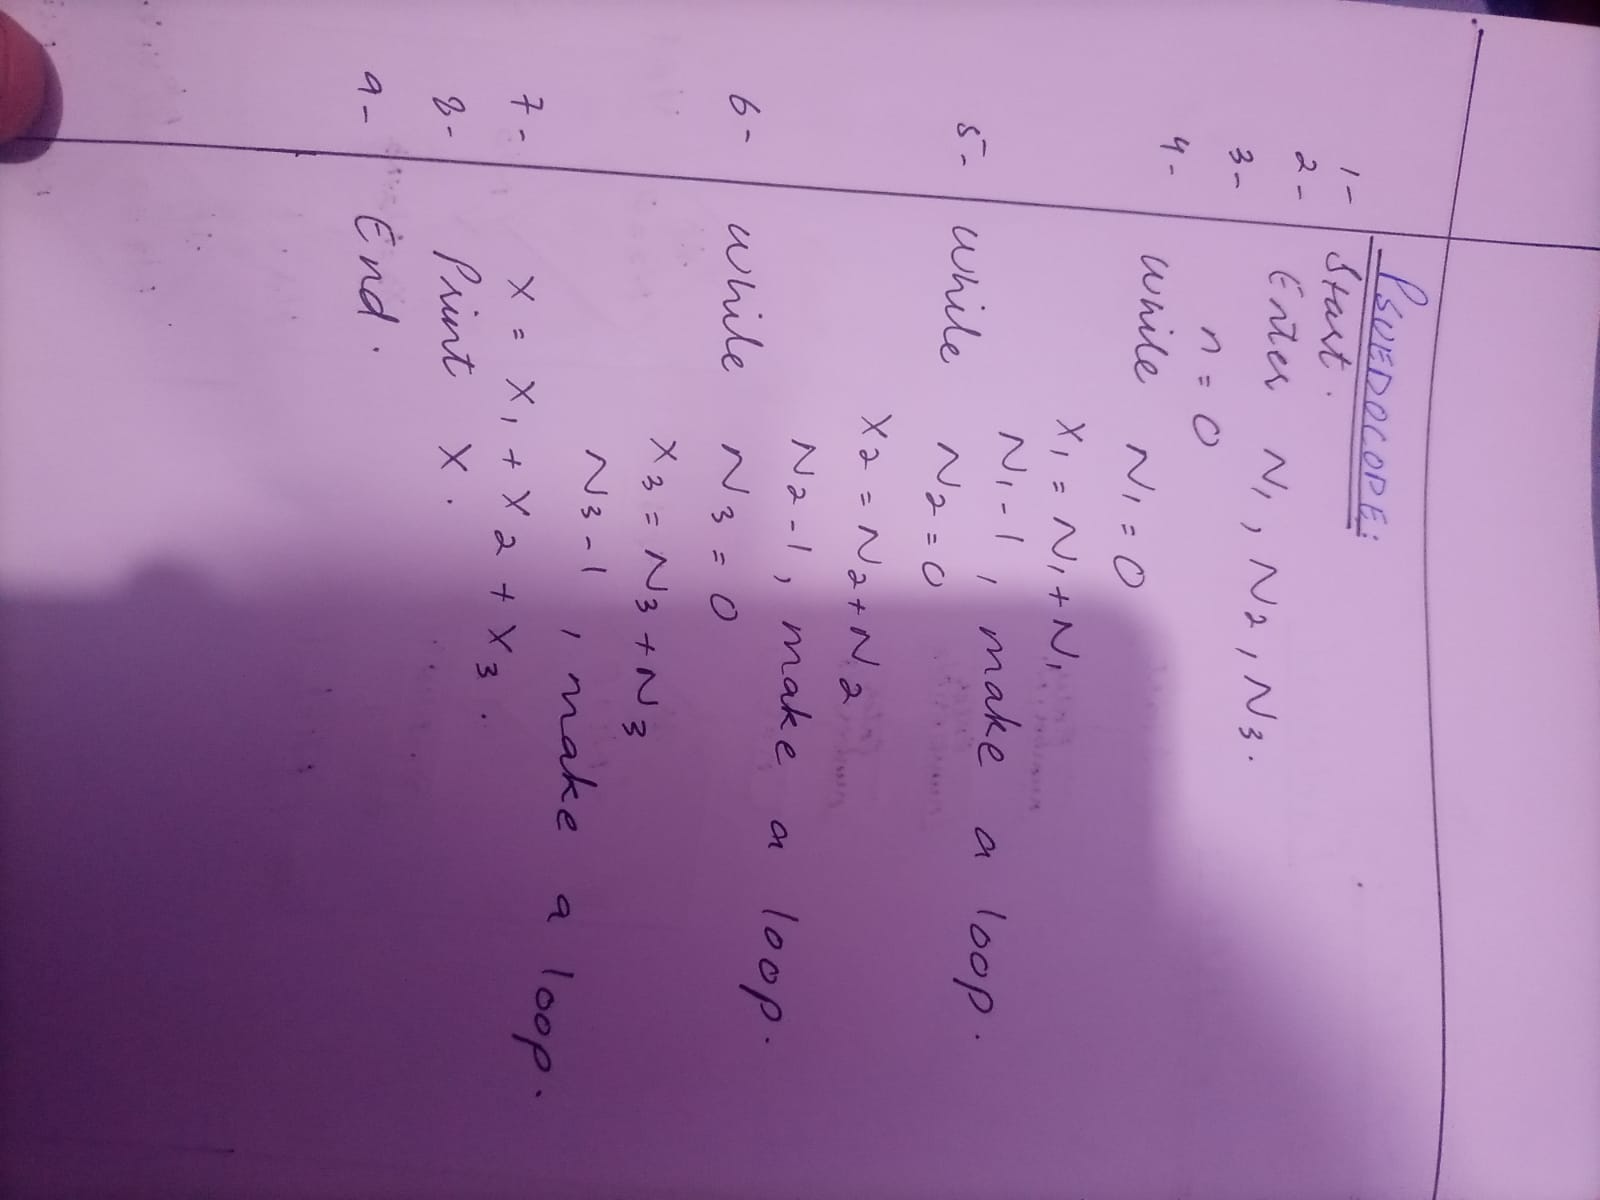 PSUEDOCODE:
1- Start.
2- Enter N1, N2, N3.
3- n = 0
4- While N1 = 0
X1 = N1 + N1
N1 - 1, make a loop.
5- While N2 = 0
X2 = N2 + N2
N2 - 1, make a loop.
6- While N3 = 0
X3 = N3 + N3
N3 - 1, make a loop.
7- X = X1 + X2 + X3.
8- Print X.
9- End.